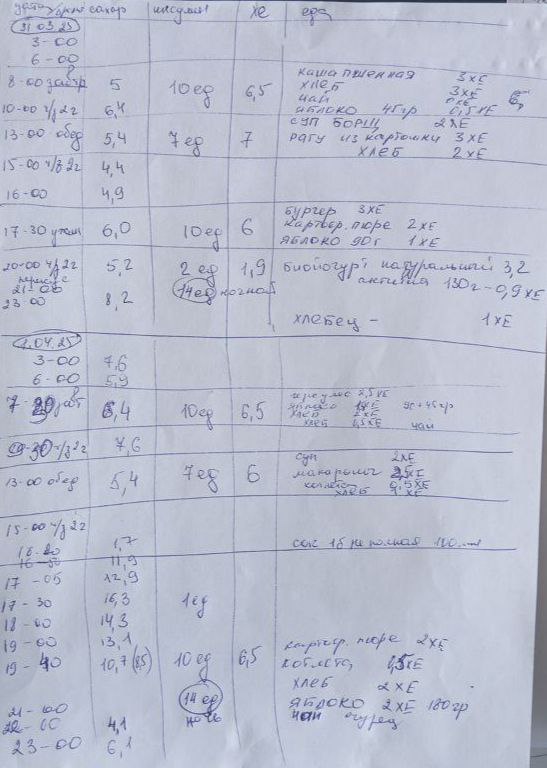 дата время сахар инсулин ХЕ еда
31.03.25
3-00
6-00
8-00 завтр 5 10 ед 6,5 каша пшенная 3ХЕ
хлеб 3ХЕ
чай
10-00 ч/з 2г 6,4 яблоко 45гр 0,5ХЕ
13-00 обед 5,4 7 ед 7 суп борщ 2ХЕ
рагу из картошки 3ХЕ
хлеб 2ХЕ
15-00 ч/з 2г 4,4
16-00 4,9
бургер 3ХЕ
17-30 ужин 6,0 10ед 6 картоф. пюре 2ХЕ
яблоко 90г 1ХЕ
20-00 ч/з 2г 5,2 2 ед 1,9 биойогурт натуральный 3,2
активиа 130г-0,9ХЕ
21-00 14ед ночной
23-00 8,2
хлебец - 1ХЕ
1.04.25
3-00 7,6
6-00 5,9
7-30 завт 6,4 10ед 6,5 геркулес 2,5ХЕ
яблоко 1ХЕ 90+45гр
хлеб 2ХЕ
хлеб 0,5ХЕ чай
ч/з 2г 7,6
суп 2ХЕ
13-00 обед 5,4 7ед 6 макароны 2,5ХЕ
котлета 0,5ХЕ
хлеб 1ХЕ
15-00 ч/з 2г
1,7 сок 1б неполная
11,9
17-05 12,9
17-30 16,3 1ед
18-00 14,3
19-00 13,1
картоф. пюре 2ХЕ
19-40 10,7 (8,5) 10ед 6,5 котлета 0,5ХЕ
хлеб 2ХЕ
21-00 14ед ночь яблоко 2ХЕ 180гр
22-00 4,1 чай огурец
23-00 6,1